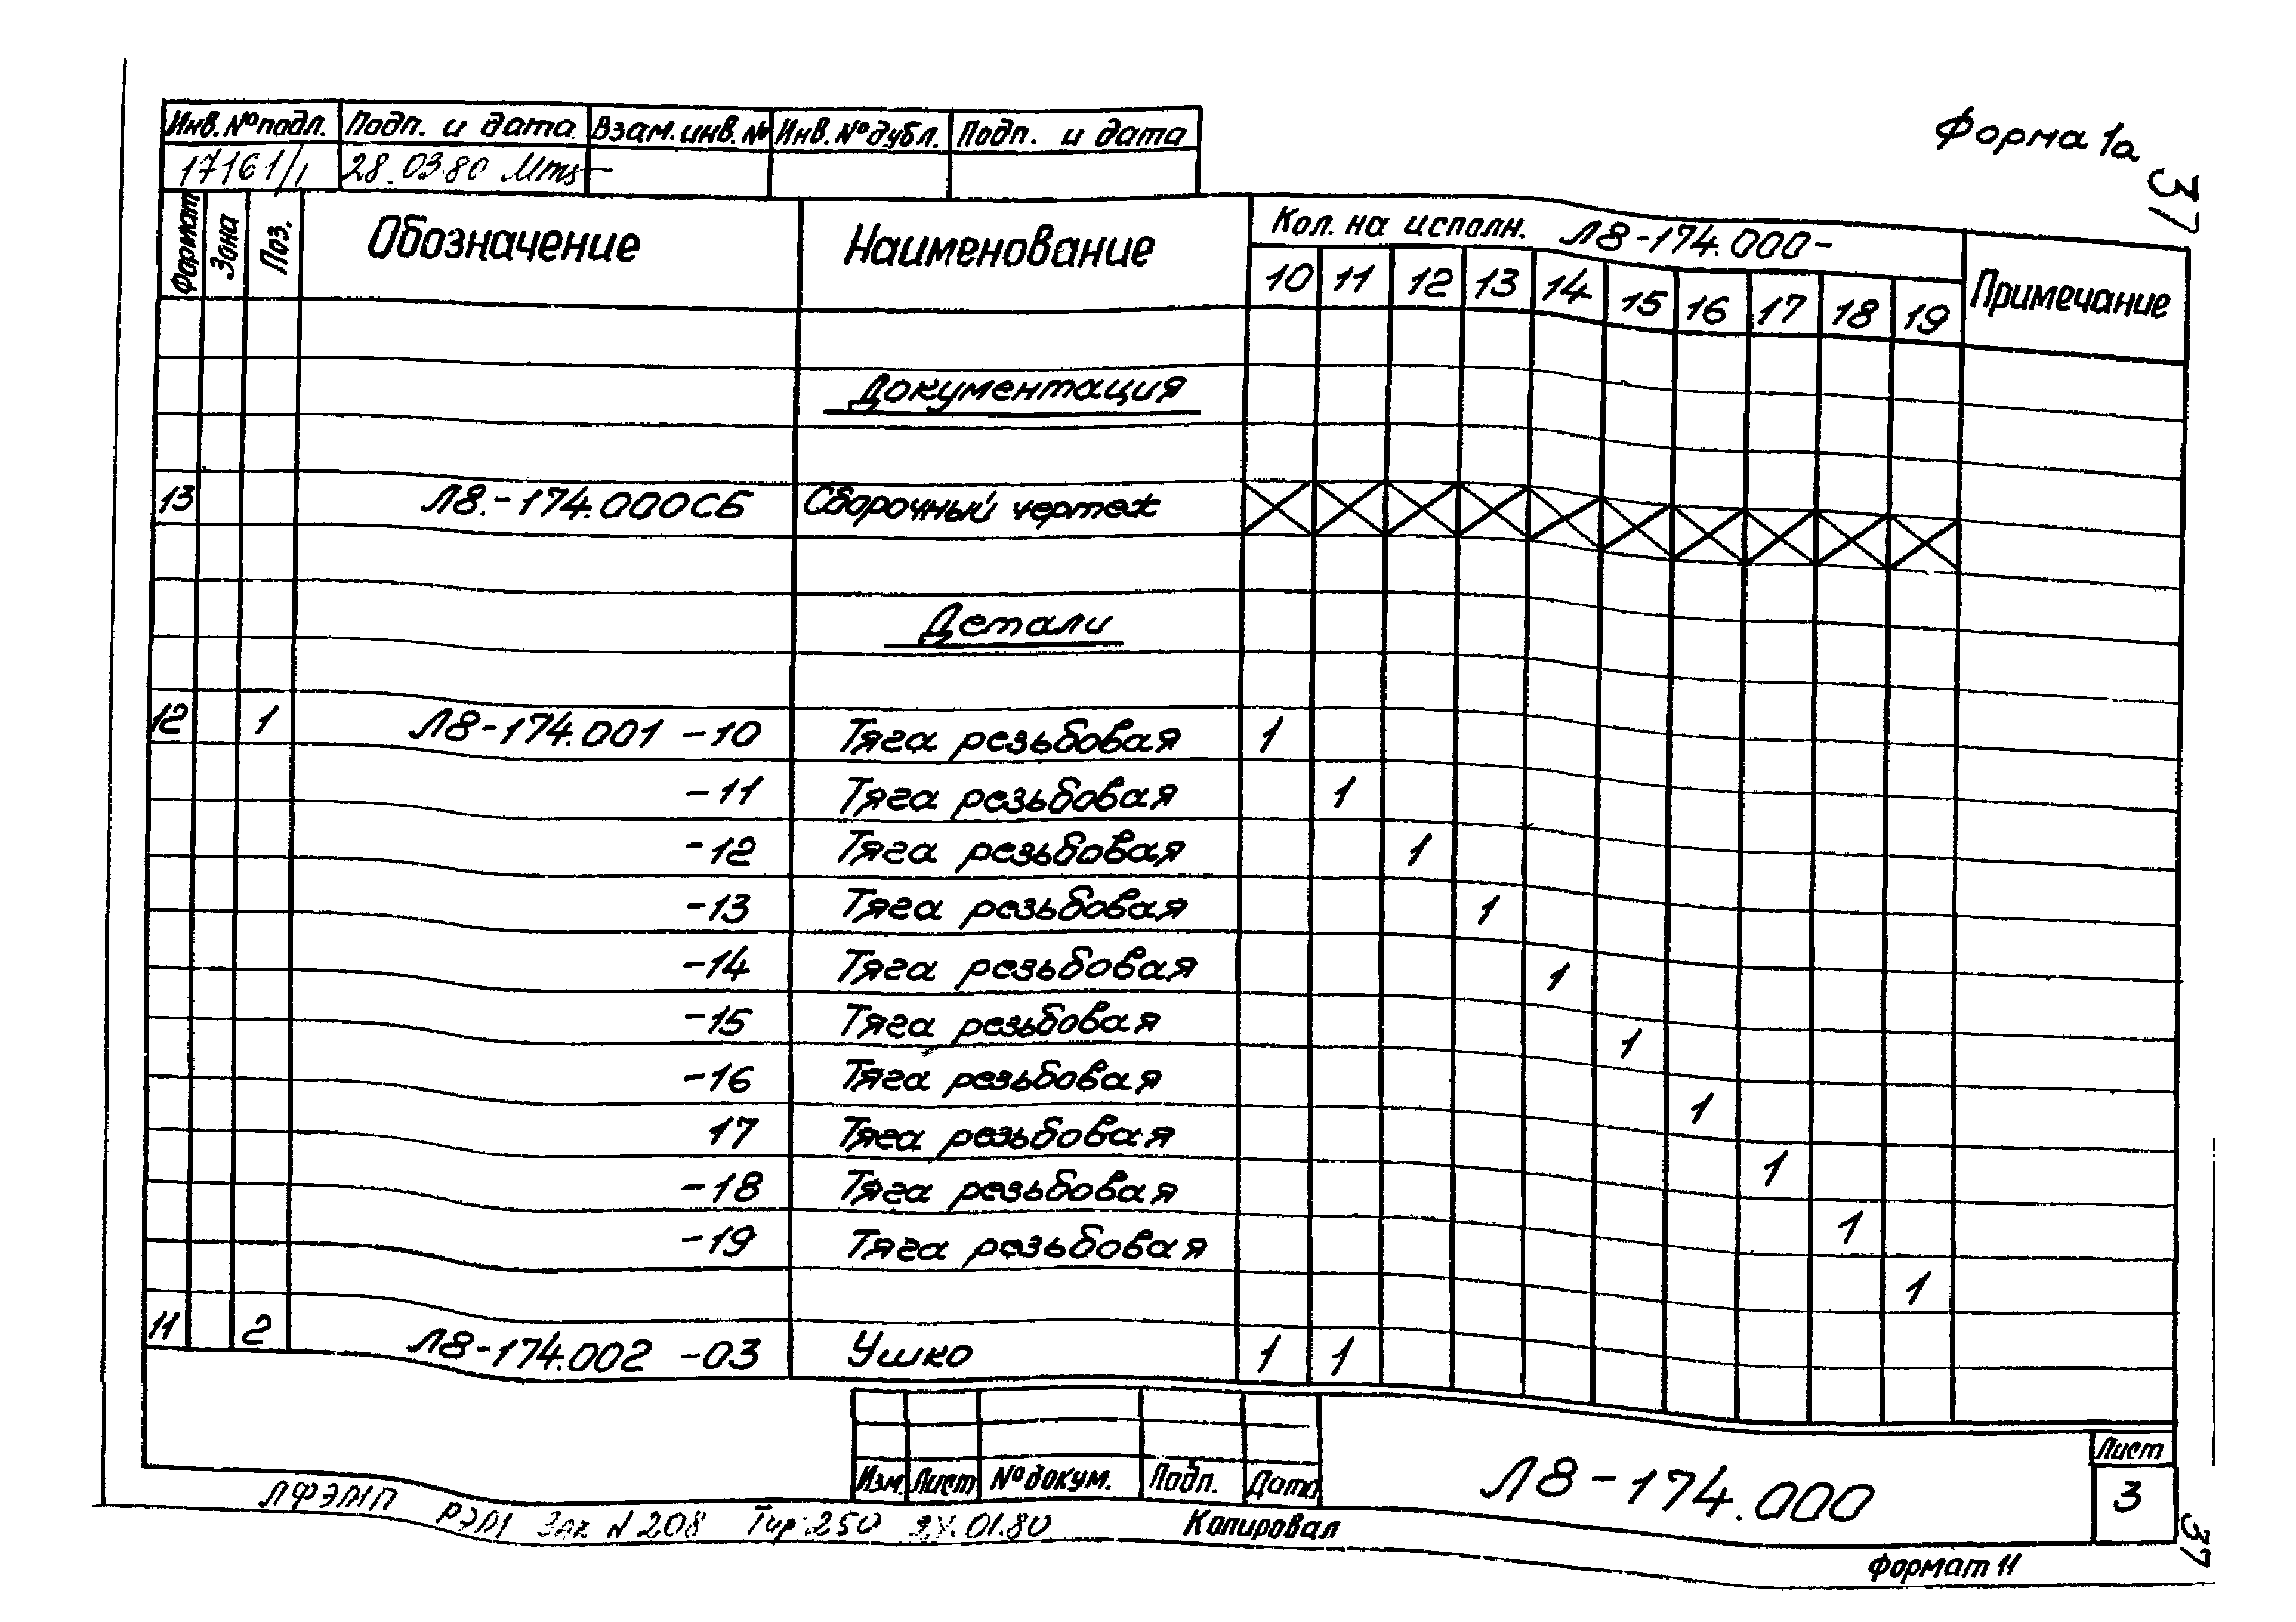 Форма 1а
37
Инв.№ подл. Подп. и дата Взам.инв.№ Инв.№ дубл. Подп. и дата
17161/1 28.03.80
Формат Зона Поз. Обозначение Наименование Кол. на исполн. Л8-174.000- Примечание
10 11 12 13 14 15 16 17 18 19
Документация
13 Л8.-174.000СБ Сборочный чертеж
Детали
12 1 Л8-174.001 -10 Тяга резьбовая 1
-11 Тяга резьбовая 1
-12 Тяга резьбовая 1
-13 Тяга резьбовая 1
-14 Тяга резьбовая 1
-15 Тяга резьбовая 1
-16 Тяга резьбовая 1
17 Тяга резьбовая 1
-18 Тяга резьбовая 1
-19 Тяга резьбовая 1
11 2 Л8-174.002 -03 Ушко 1 1
Изм. Лист № докум. Подп. Дата
Л8-174.000
Лист
3
Зак N 208 Тир. 250 01.80
Копировал
Формат 11
37